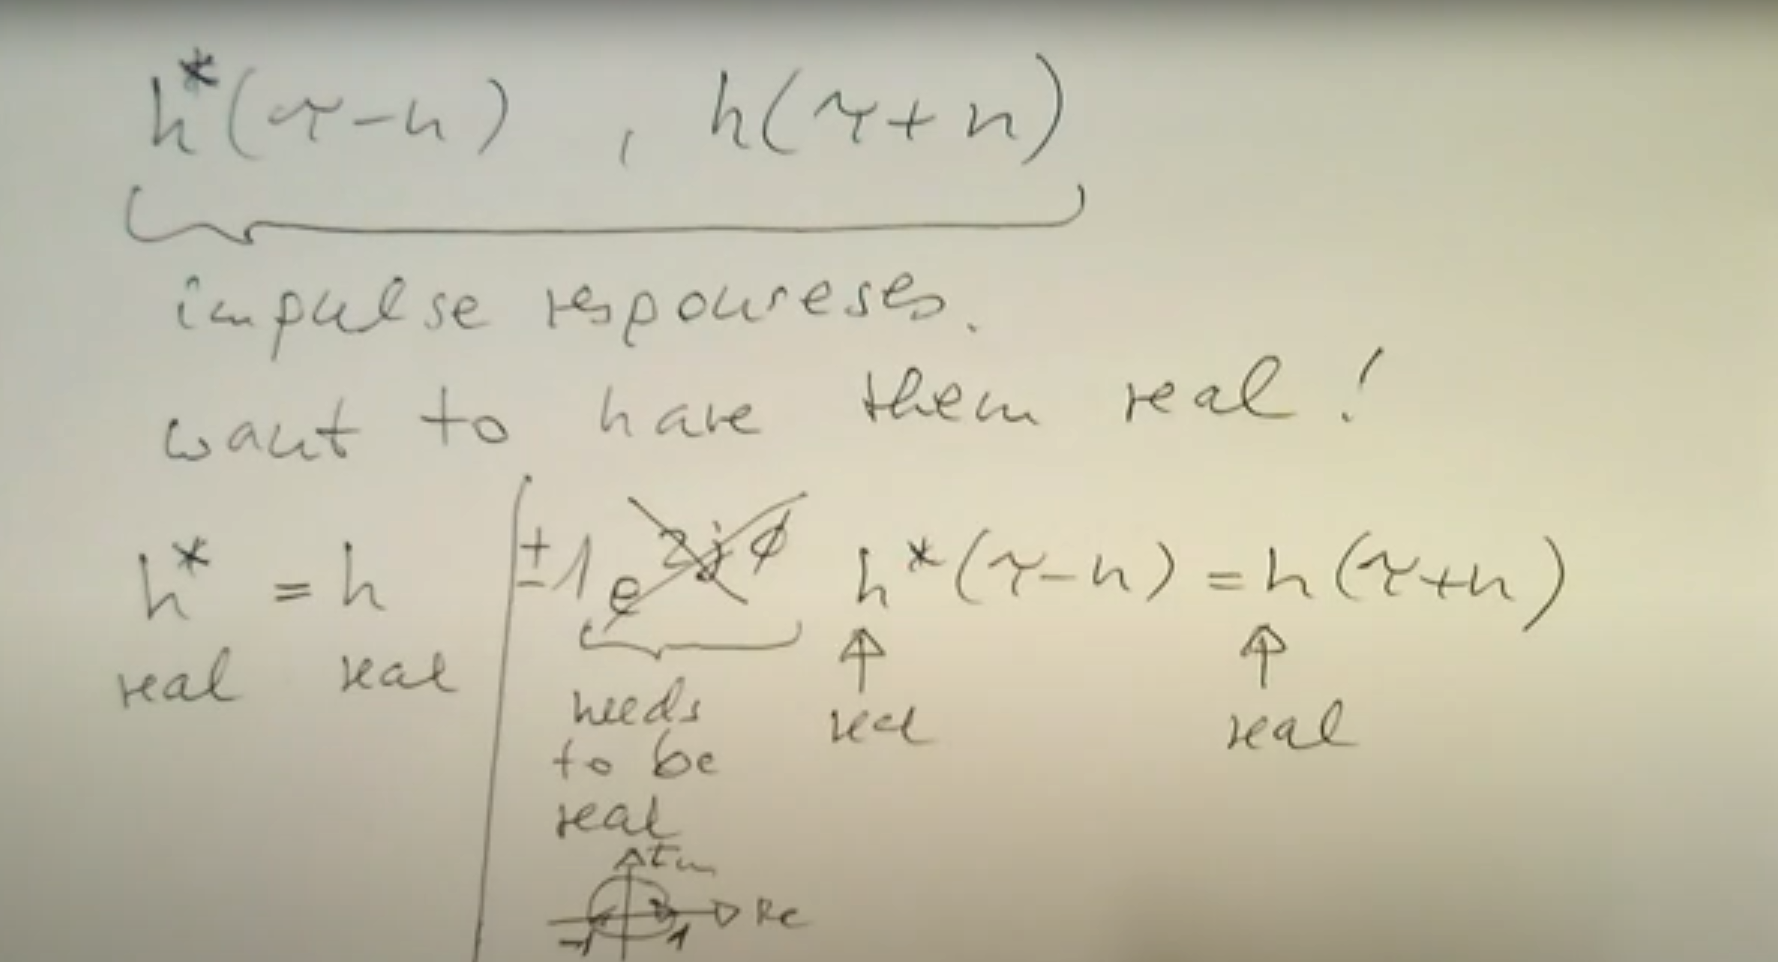 h*(τ-n) , h(τ+n)
impulse responseses.
want to have them real!
h* = h
real real
±1 e^{2jϕ} h*(τ-n) = h(τ+n)
needs
to be
real
real real
Im
Re
-1 1